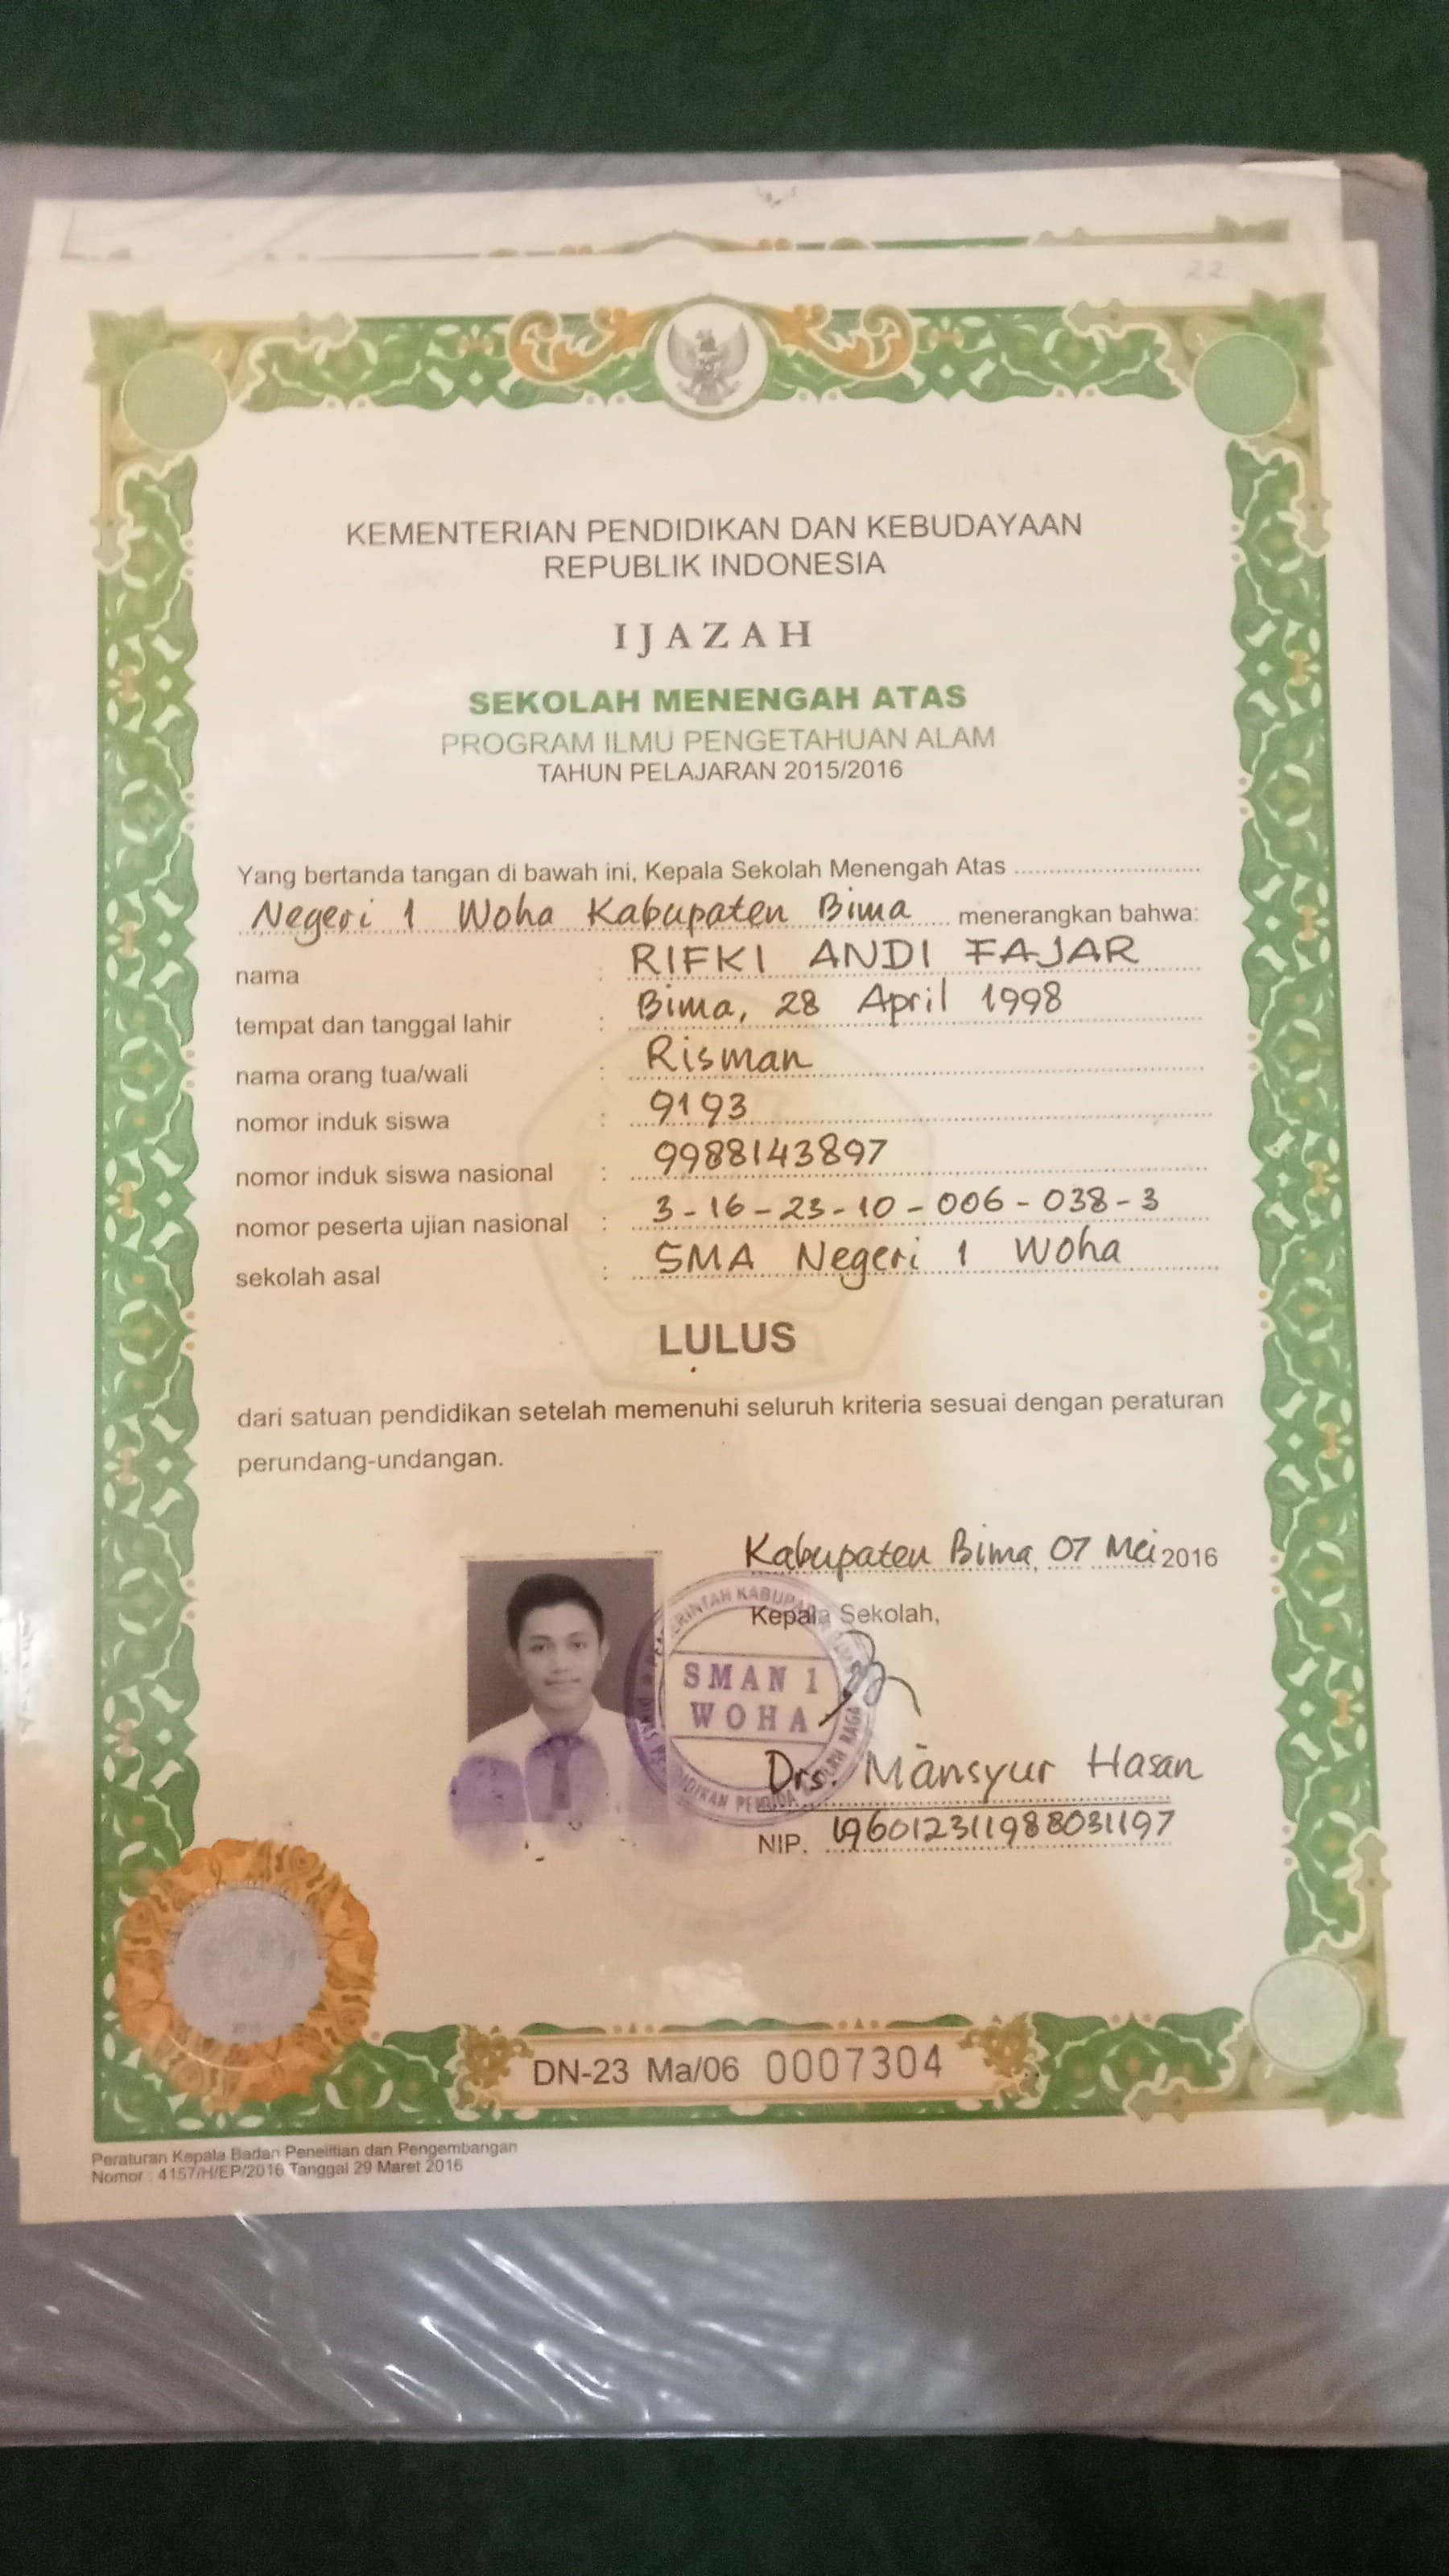 22
KEMENTERIAN PENDIDIKAN DAN KEBUDAYAAN
REPUBLIK INDONESIA
IJAZAH
SEKOLAH MENENGAH ATAS
PROGRAM ILMU PENGETAHUAN ALAM
TAHUN PELAJARAN 2015/2016
Yang bertanda tangan di bawah ini, Kepala Sekolah Menengah Atas
Negeri 1 Woha Kabupaten Bima menerangkan bahwa:
nama : RIFKI ANDI FAJAR
tempat dan tanggal lahir : Bima, 28 April 1998
nama orang tua/wali : Risman
nomor induk siswa : 9193
nomor induk siswa nasional : 9988143897
nomor peserta ujian nasional : 3-16-23-10-006-038-3
sekolah asal : SMA Negeri 1 Woha
LULUS
dari satuan pendidikan setelah memenuhi seluruh kriteria sesuai dengan peraturan
perundang-undangan.
Kabupaten Bima, 07 Mei 2016
Kepala Sekolah,
SMAN 1
WOHA
Drs. Mansyur Hasan
NIP. 196012311988031197
DN-23 Ma/06 0007304
Peraturan Kepala Badan Penelitian dan Pengembangan
Nomor : 4157/H/EP/2016 Tanggal 29 Maret 2016